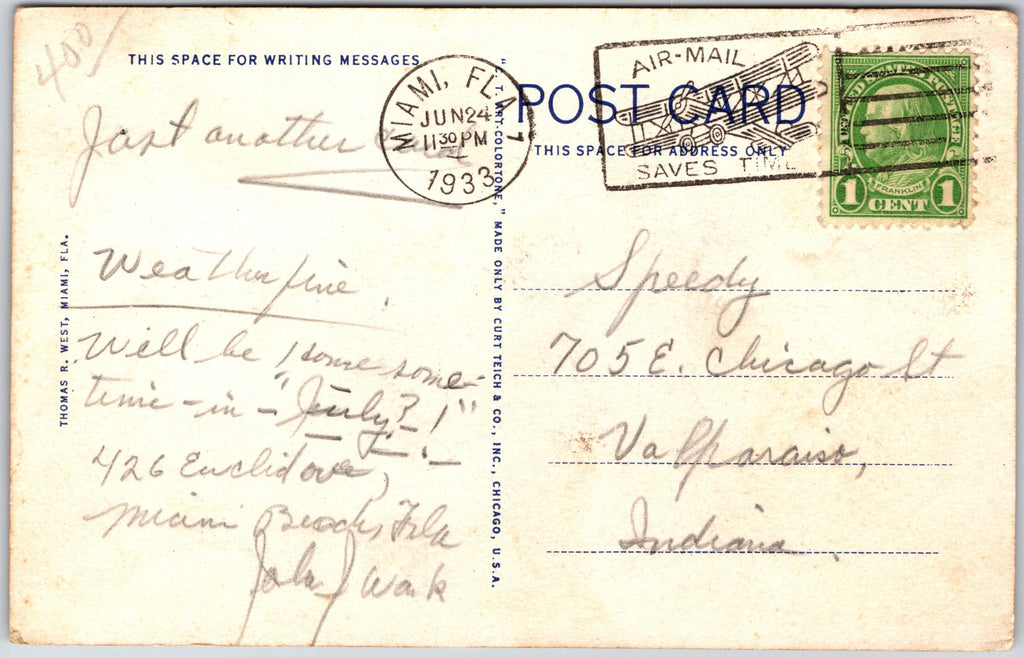 400
THIS SPACE FOR WRITING MESSAGES
Just another Card
Weather fine.
Will be home some-
time - in - "July? !"
426 Euclid ave,
Miami Beach, Fla
John J Wark
THOMAS R. WEST, MIAMI, FLA.
"C. T. ART-COLORTONE," MADE ONLY BY CURT TEICH & CO., INC., CHICAGO, U.S.A.
MIAMI, FLA 1
JUN 24
11 30 PM
1933
POST CARD
THIS SPACE FOR ADDRESS ONLY
AIR-MAIL
SAVES TIME
UNITED STATES POSTAGE
FRANKLIN
1 CENT 1
Speedy
705 E. Chicago St
Valparaiso,
Indiana